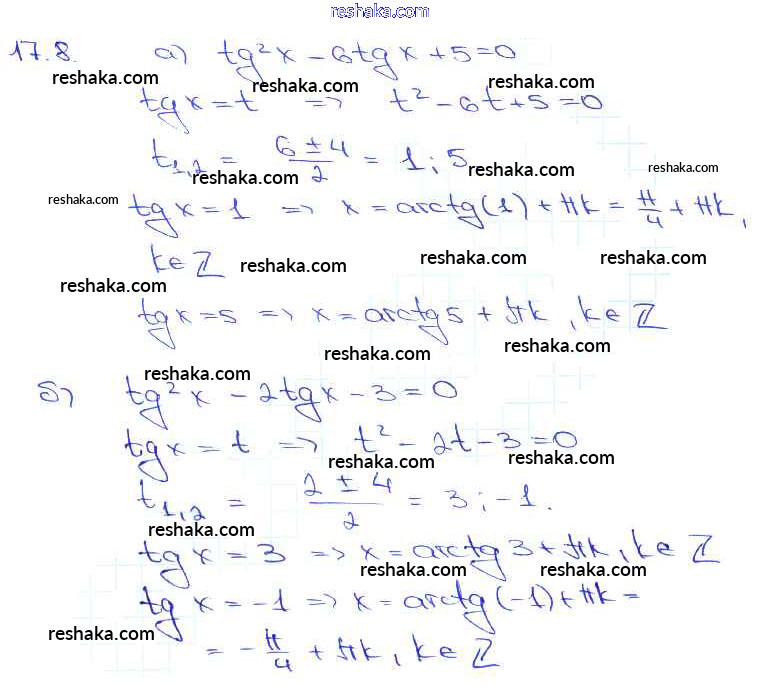 reshaka.com
17.8. а) tg²x - 6tgx + 5 = 0
reshaka.com reshaka.com
tgx = t => t² - 6t + 5 = 0
t₁,₂ = (6 ± 4)/2 = 1; 5
reshaka.com reshaka.com reshaka.com
reshaka.com
tgx = 1 => x = arctg(1) + πk = π/4 + πk,
k ∈ ℤ reshaka.com reshaka.com reshaka.com
reshaka.com reshaka.com
tgx = 5 => x = arctg5 + πk, k ∈ ℤ
reshaka.com reshaka.com
reshaka.com
б) tg²x - 2tgx - 3 = 0
tgx = t => t² - 2t - 3 = 0
reshaka.com reshaka.com
t₁,₂ = (2 ± 4)/2 = 3; -1.
reshaka.com
tgx = 3 => x = arctg3 + πk, k ∈ ℤ
reshaka.com reshaka.com
tgx = -1 => x = arctg(-1) + πk =
reshaka.com
= -π/4 + πk, k ∈ ℤ
reshaka.com